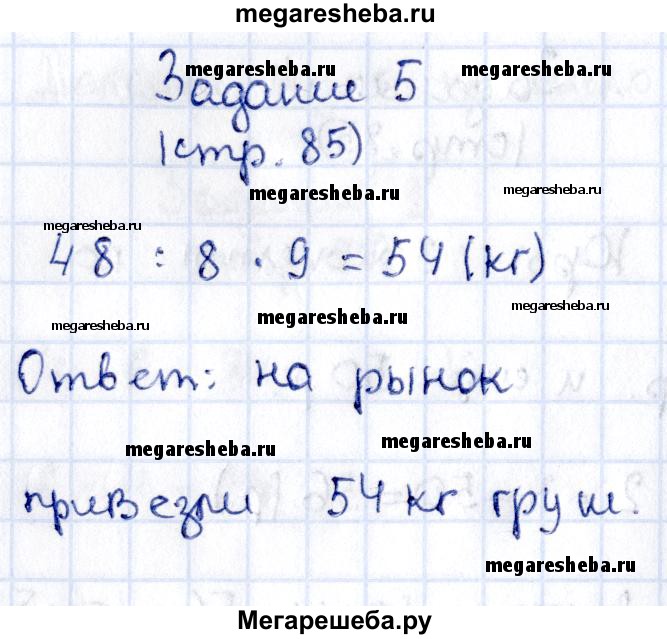 megaresheba.ru
Задание 5
megaresheba.ru megaresheba.ru
(стр. 85)
megaresheba.ru megaresheba.ru
megaresheba.ru
48 : 8 · 9 = 54 (кг)
megaresheba.ru
megaresheba.ru megaresheba.ru
Ответ: на рынок
megaresheba.ru megaresheba.ru
привезли 54 кг груш.
megaresheba.ru
Мегарешеба.ру